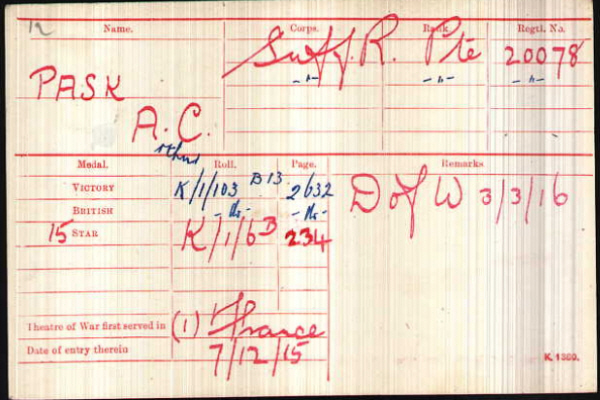 12
Name. Corps. Rank. Regtl. No.
PASK Suff. R. Pte 20078
-"- -"- -"-
A. C.
rthur
Medal. Roll. Page. Remarks
VICTORY K/1/103 B13 2632 D of W 3/3/16
BRITISH -do- -do-
15 STAR K/1/6B 234
Theatre of War first served in (1) France
Date of entry therein 7/12/15
K. 1380.